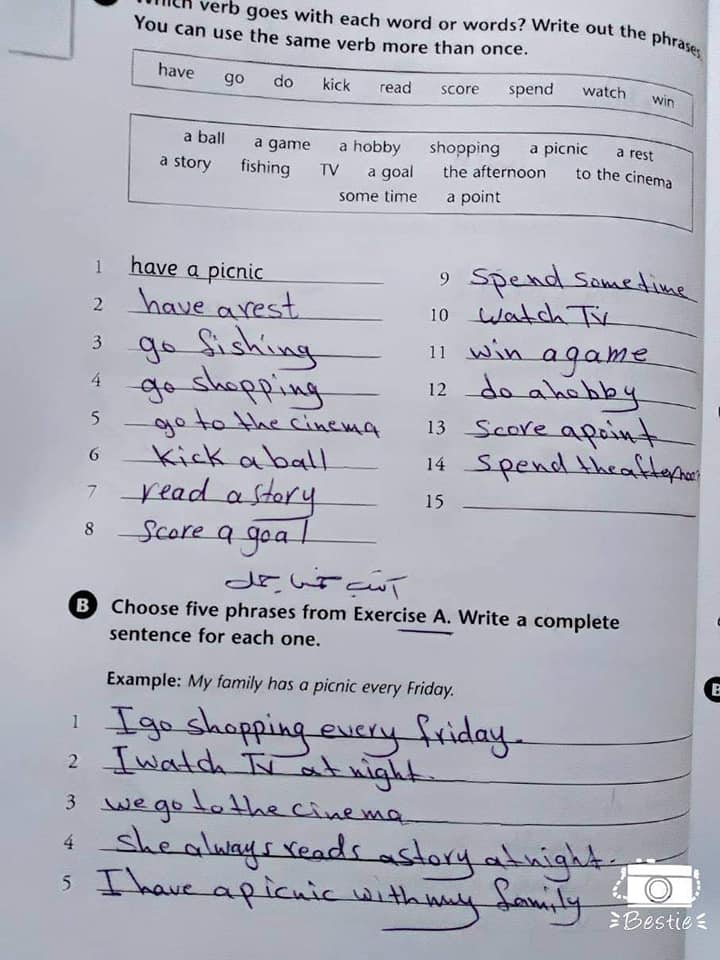 verb goes with each word or words? Write out the phrases.
You can use the same verb more than once.
have go do kick read score spend watch win
a ball a game a hobby shopping a picnic a rest
a story fishing TV a goal the afternoon to the cinema
some time a point
1 have a picnic
2 have a rest
3 go fishing
4 go shopping
5 go to the cinema
6 kick a ball
7 read a story
8 Score a goal
9 Spend some time
10 Watch Tv
11 win a game
12 do a hobby
13 Score a point
14 Spend the afternoon
15
اكتب خمس جمل
B Choose five phrases from Exercise A. Write a complete
sentence for each one.
Example: My family has a picnic every Friday.
1 I go shopping every friday.
2 I watch Tv at night.
3 we go to the cinema
4 She always reads a story at night.
5 I have a picnic with my family
Bestie